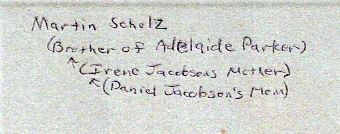 Martin Scholz
(Brother of Adelaide Parker)
↑(Irene Jacobsens Mother)
↑(Daniel Jacobson's Mom)